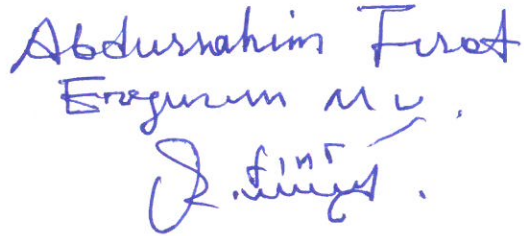 Abdurrahim Fırat
Erzurum M V.